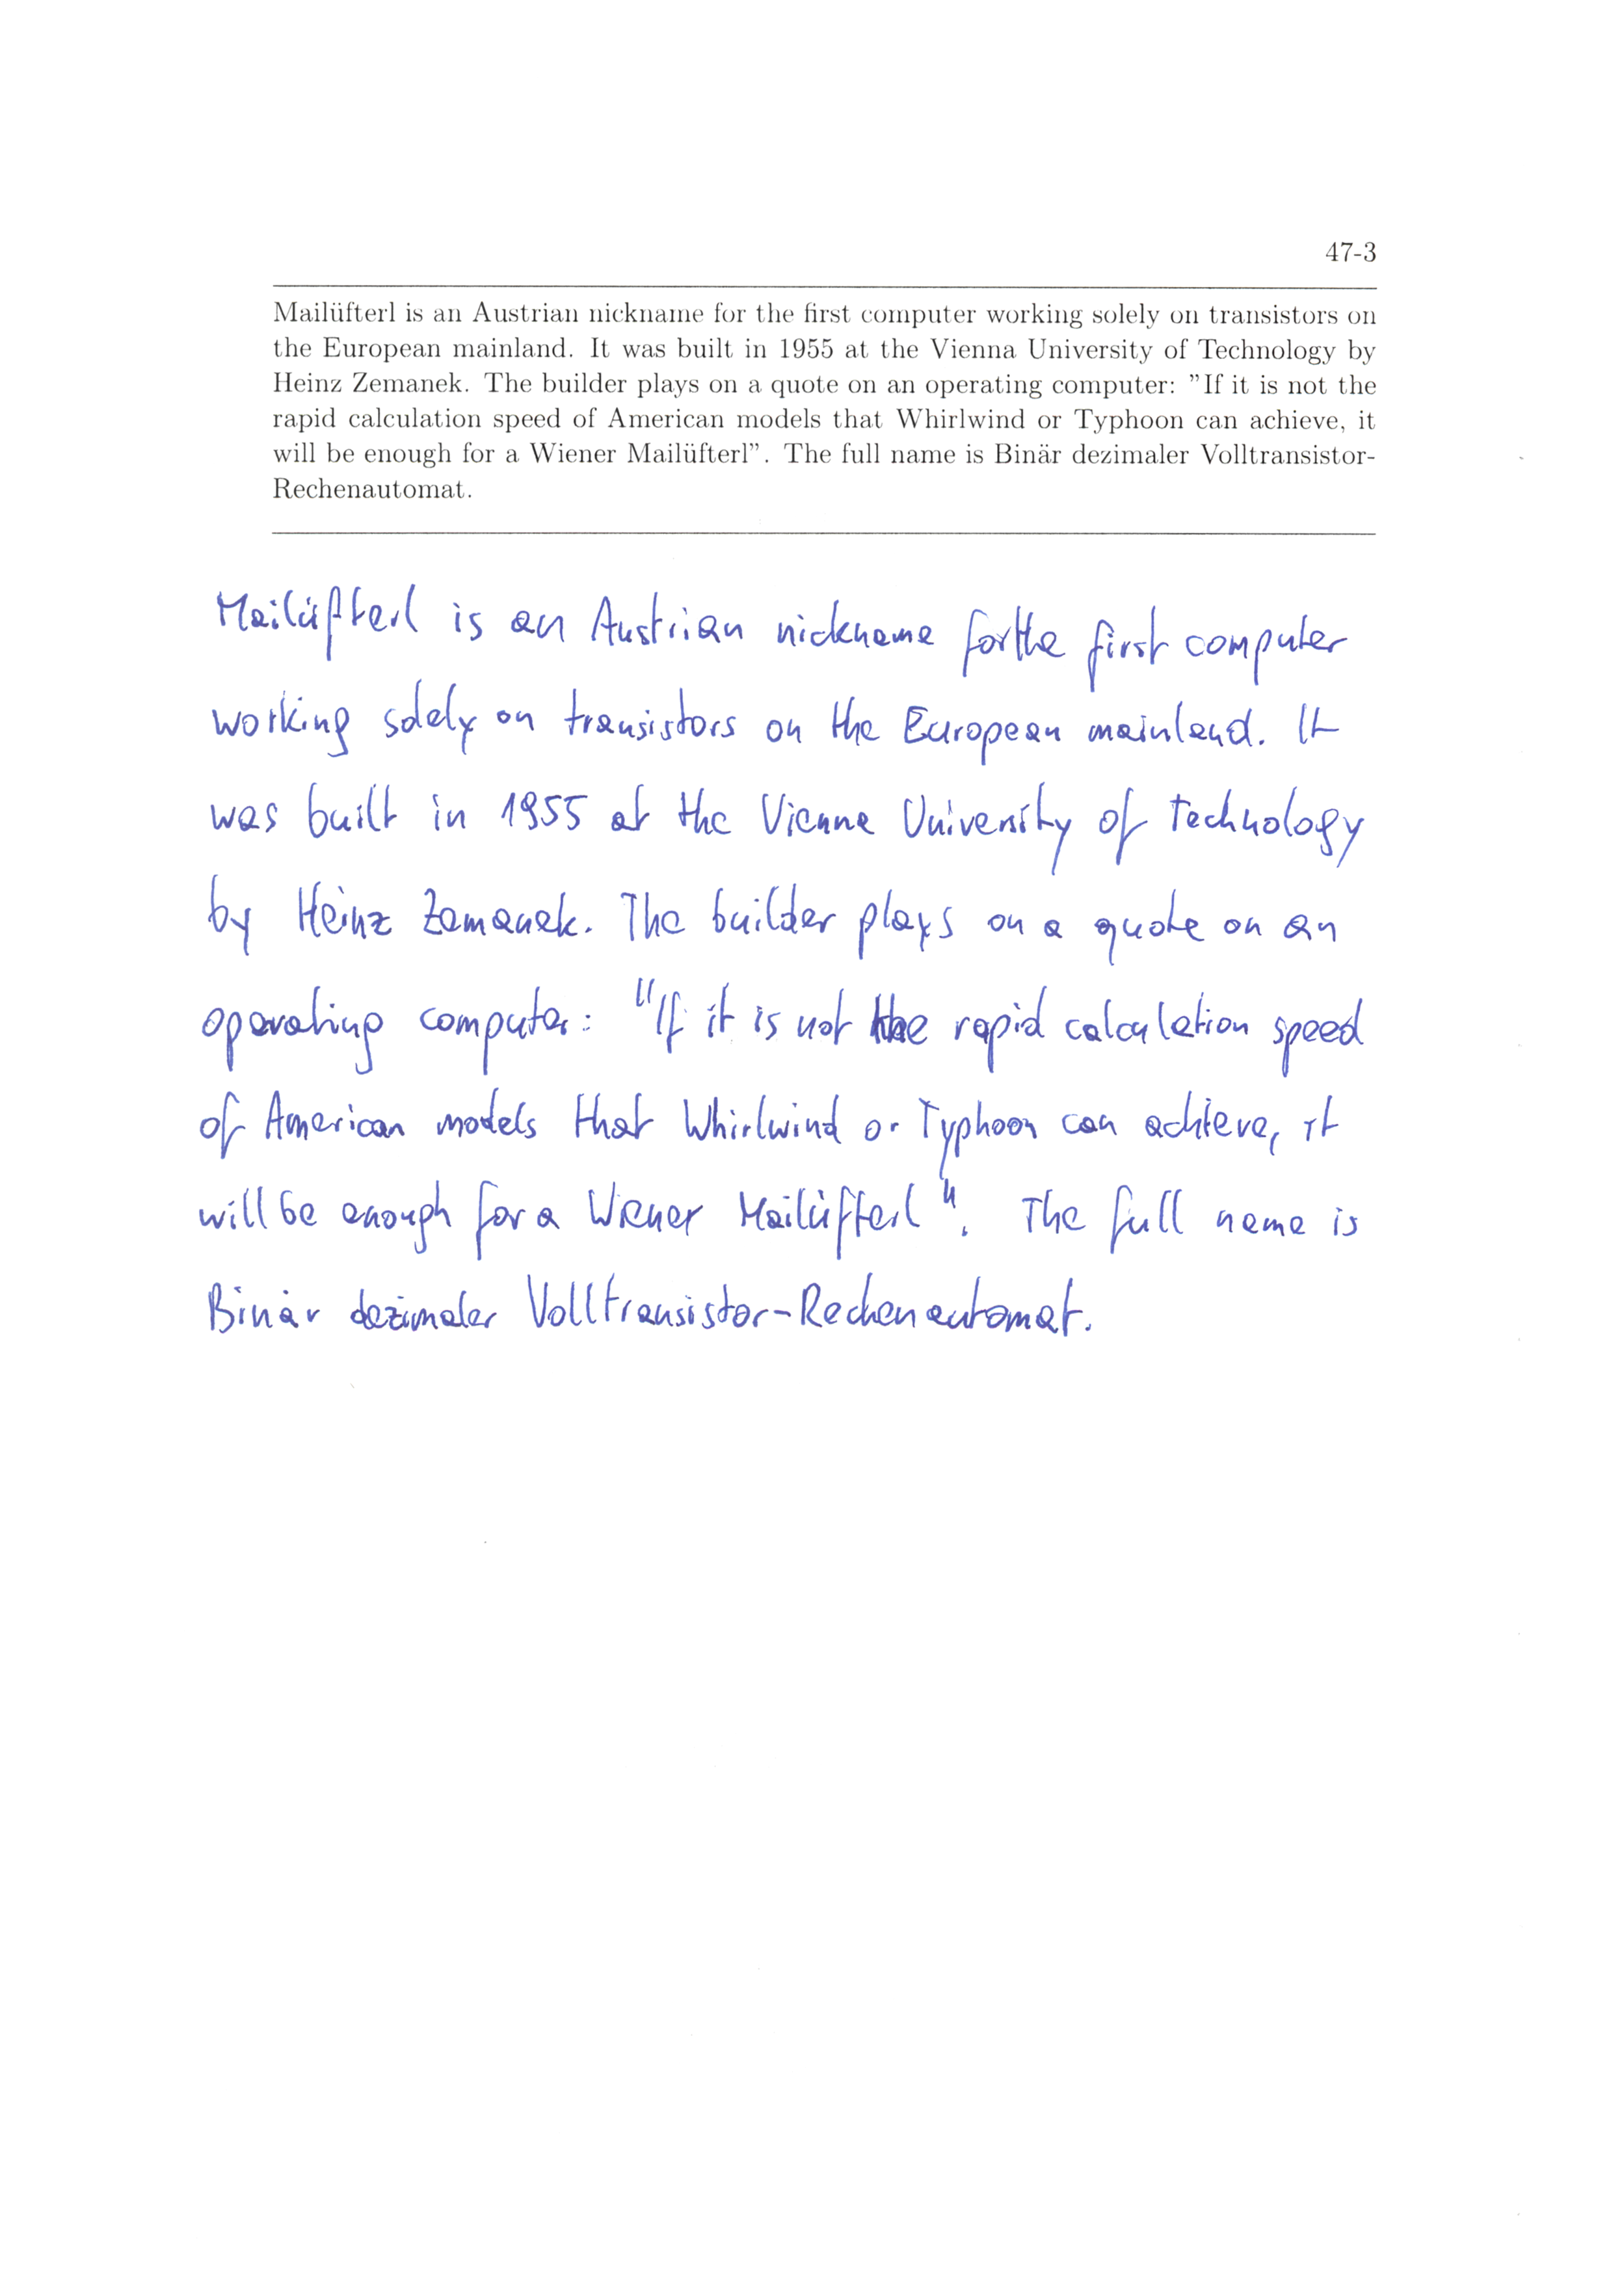 47-3
Mailüfterl is an Austrian nickname for the first computer working solely on transistors on
the European mainland. It was built in 1955 at the Vienna University of Technology by
Heinz Zemanek. The builder plays on a quote on an operating computer: "If it is not the
rapid calculation speed of American models that Whirlwind or Typhoon can achieve, it
will be enough for a Wiener Mailüfterl". The full name is Binär dezimaler Volltransistor-
Rechenautomat.
Mailüfterl is an Austrian nickname for the first computer
working solely on transistors on the European mainland. It
was built in 1955 at the Vienna University of Technology
by Heinz Zemanek. The builder plays on a quote on an
operating computer: "If it is not the rapid calculation speed
of American models that Whirlwind or Typhoon can achieve, it
will be enough for a Wiener Mailüfterl". The full name is
Binär dezimaler Volltransistor-Rechenautomat.